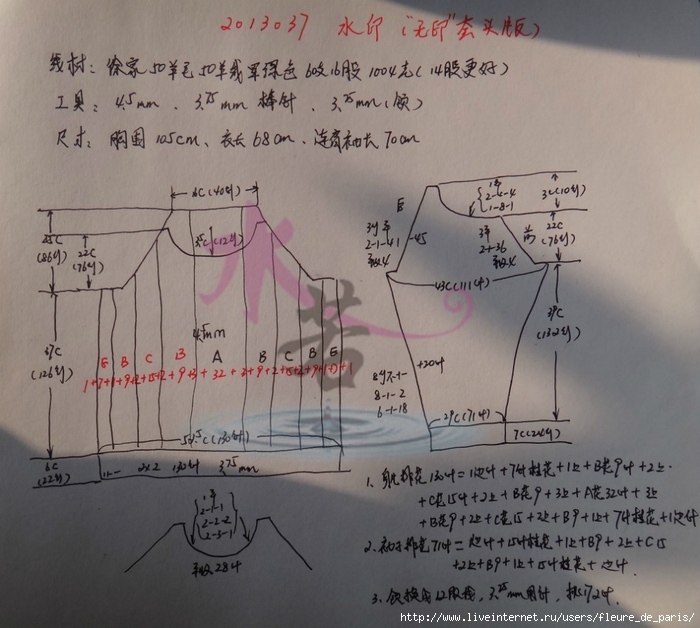 2013037 水印（"无印"套头版）
线材：徐家50羊毛50羊绒军绿色 6改16股 1004克（14股更好）
工具：4.5mm、3.75mm棒针、3.75mm（领）
尺寸：胸围105cm、衣长68cm、连肩袖长70cm
(40针)
25C
(86针)
22C
(76针)
3.5C(12针)
37C
(126针)
6C
(22针)
4.5mm
E B C B A B C B E
2x2 130针 3.75mm
1平
2-1-1
2-2-2
2-3-1
平收28针
1平
2-4-4
1-8-1
3C(10针)
后
3针平
2-1-41
平收4
-45
3平
2-1-36
平收4
前
22C
(76针)
43C(111针)
39C
(132针)
+20针
8针7平
8-1-2
6-1-18
29C(71针)
7C(24针)
1、身片排花130针=1边针+7针桂花+1上+B花9针+2上
+C花15针+2上+B花9+3上+A花32针+3上
+B花9+2上+C花15+2上+B9+1上+7针桂花+1边针
2、袖子排花71针=1边针+15针桂花+1上+B9+2上+C15
+2上+B9+1上+15针桂花+1边针
3、领换成12股线，3.75mm用针，挑172针
水苦
http://www.liveinternet.ru/users/fleure_de_paris/